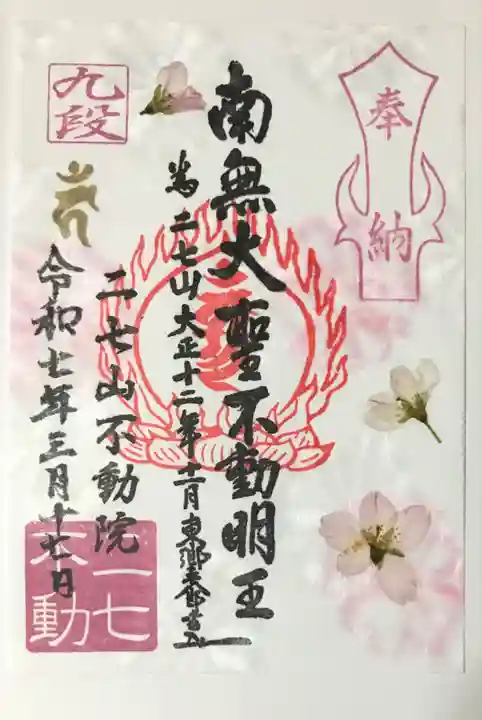 奉納
南無大聖不動明王
為二七山大正十二年十一月東郷
二七山不動院
九段
令和七年三月十七日
二七
不動